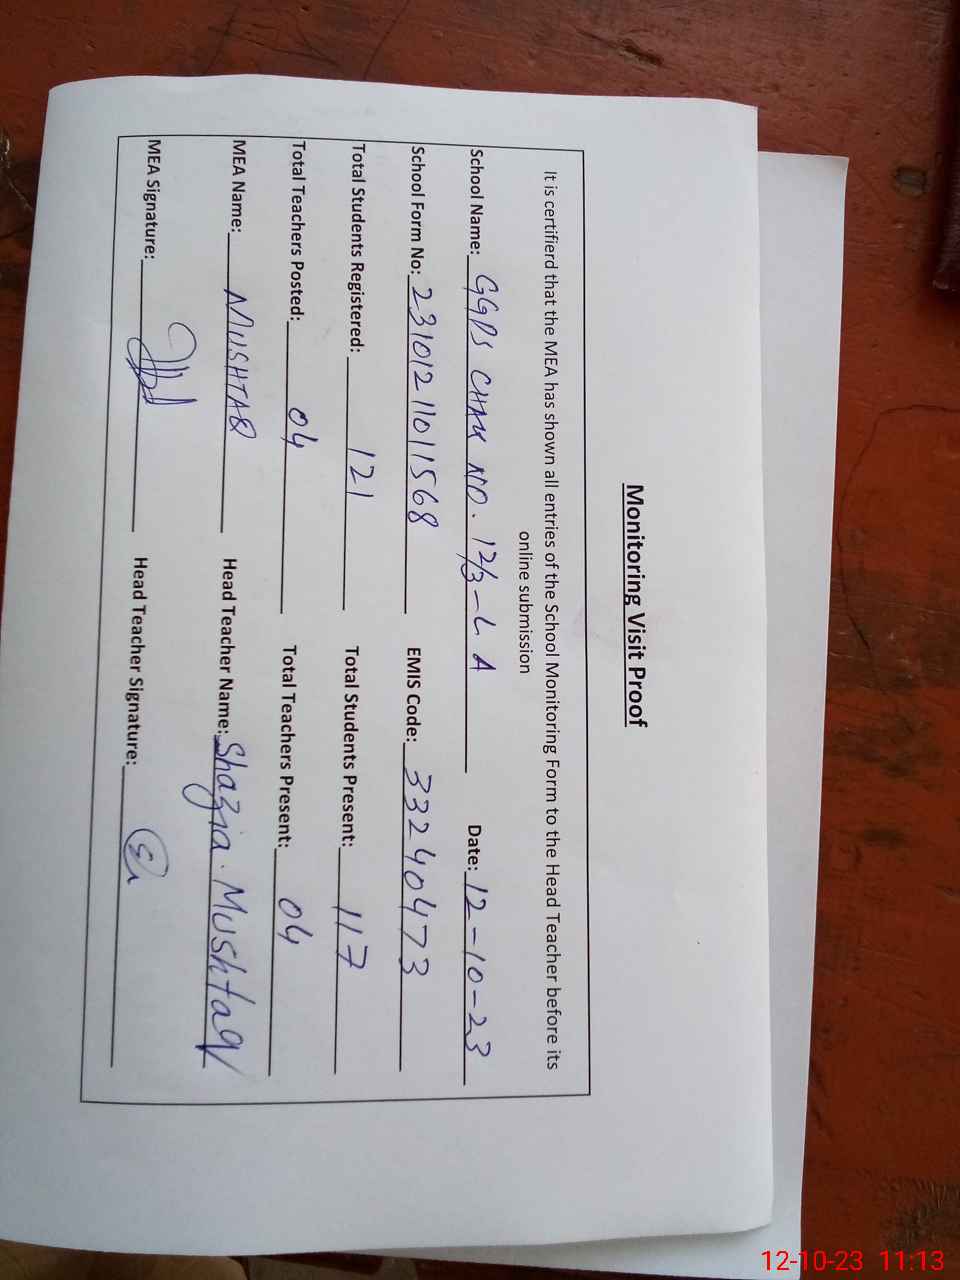 Monitoring Visit Proof
It is certifierd that the MEA has shown all entries of the School Monitoring Form to the Head Teacher before its
online submission
School Name: GGPS CHAK NO. 12/3-L A Date: 12-10-23
School Form No: 23101211011568 EMIS Code: 33240473
Total Students Registered: 121 Total Students Present: 117
Total Teachers Posted: 04 Total Teachers Present: 04
MEA Name: MUSHTAQ Head Teacher Name: Shazia. Mushtaq
MEA Signature: Head Teacher Signature:
12-10-23 11:13